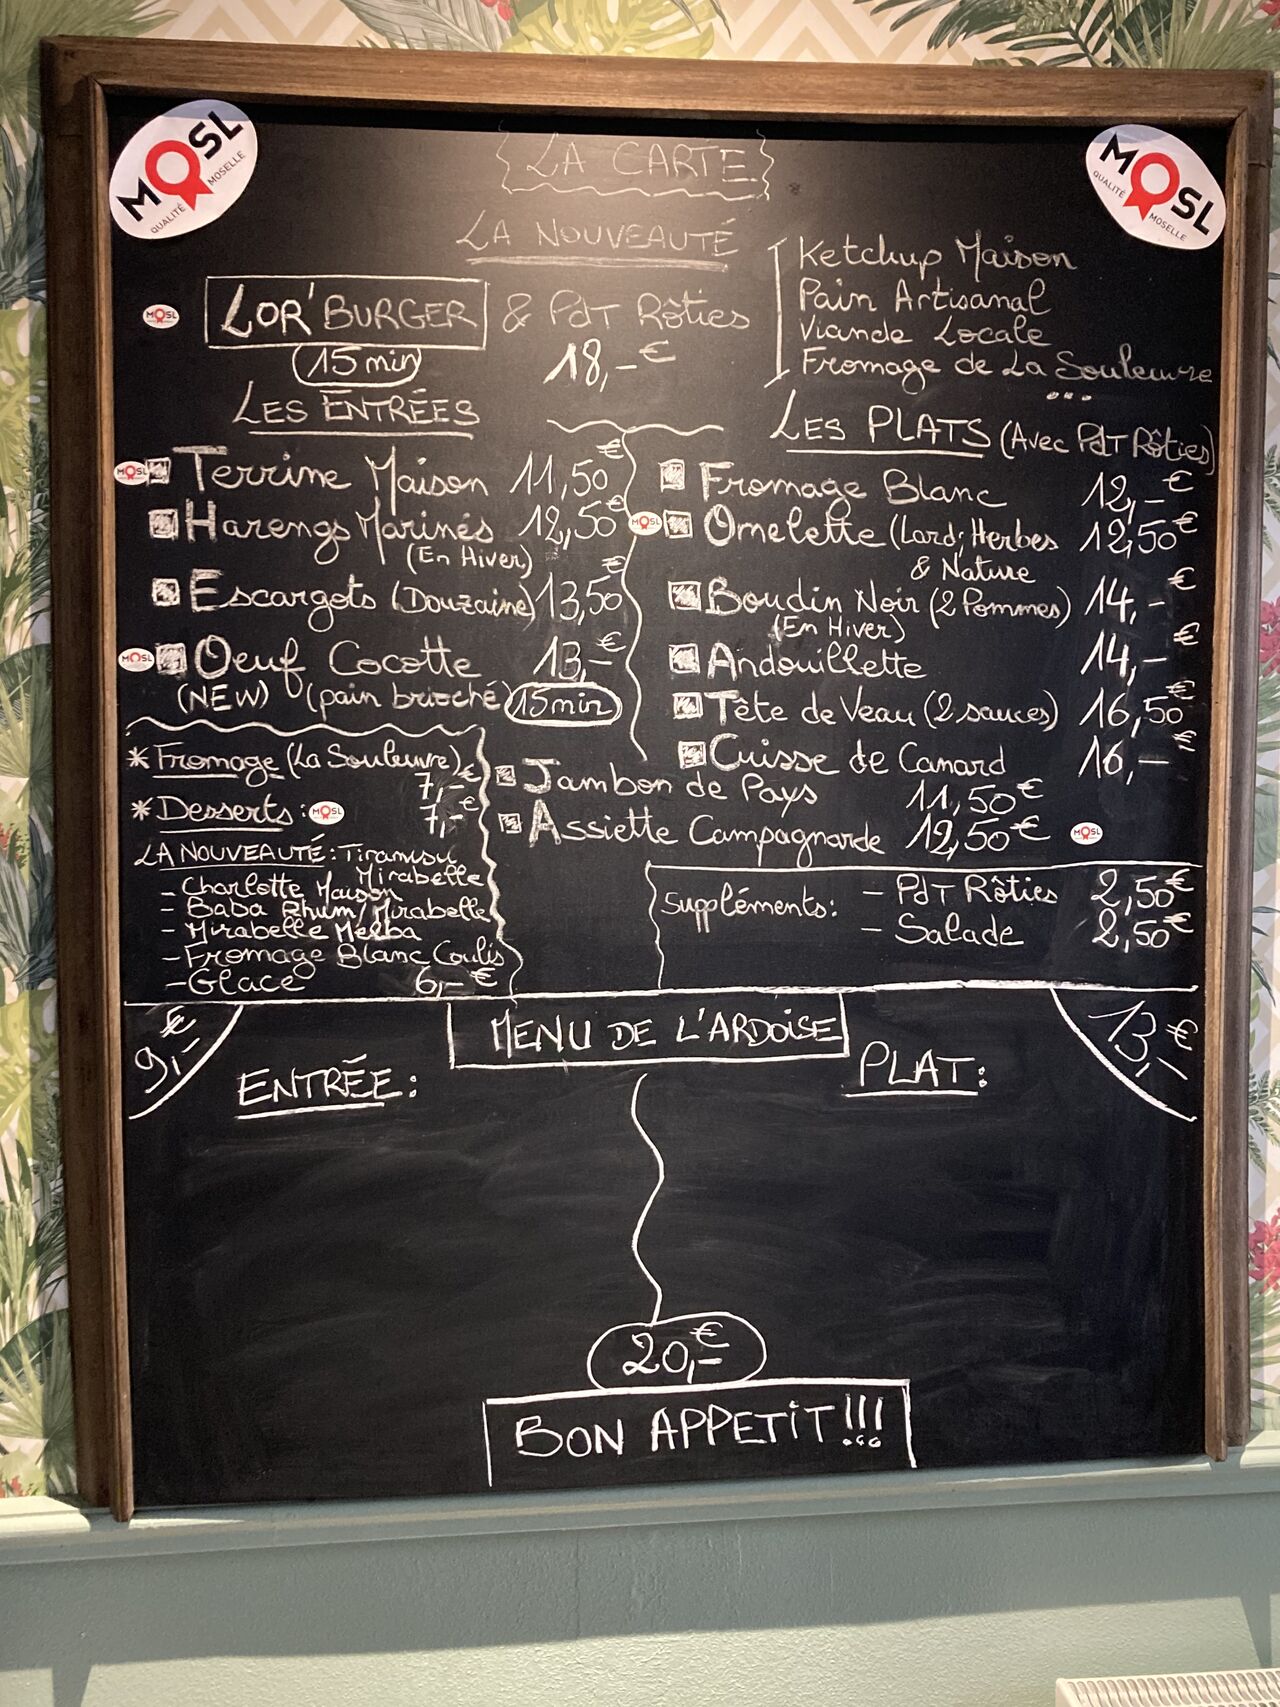 MOSL
QUALITÉ MOSELLE
MOSL
QUALITÉ MOSELLE
LA CARTE
LA NOUVEAUTÉ
MOSL
LOR'BURGER & PdT Rôties
15 min
18,-€
Ketchup Maison
Pain Artisanal
Viande Locale
Fromage de La Souleuvre
...
LES ENTRÉES
MOSL Terrine Maison 11,50€
Harengs Marinés 12,50€
(En Hiver)
Escargots (Douzaine) 13,50€
MOSL Oeuf Cocotte 13,-€
(NEW) (pain brioché) 15min
LES PLATS (Avec PdT Rôties)
Fromage Blanc 12,-€
MOSL Omelette (Lard; Herbes 12,50€
& Nature
Boudin Noir (2 Pommes) 14,-€
(En Hiver)
Andouillette 14,-€
Tête de Veau (2 sauces) 16,50€
Cuisse de Canard 16,-€
Jambon de Pays 11,50€
Assiette Campagnarde 12,50€ MOSL
* Fromage (La Souleuvre)
7,-€
* Desserts: MOSL 7,-€
LA NOUVEAUTÉ: Tiramisu
Mirabelle
- Charlotte Maison
- Baba Rhum/Mirabelle
- Mirabelle Melba
- Fromage Blanc Coulis
- Glace 6,-€
Suppléments: - PdT Rôties 2,50€
- Salade 2,50€
MENU DE L'ARDOISE
9,-€
ENTRÉE:
PLAT:
13,-€
20,-€
BON APPETIT!!!